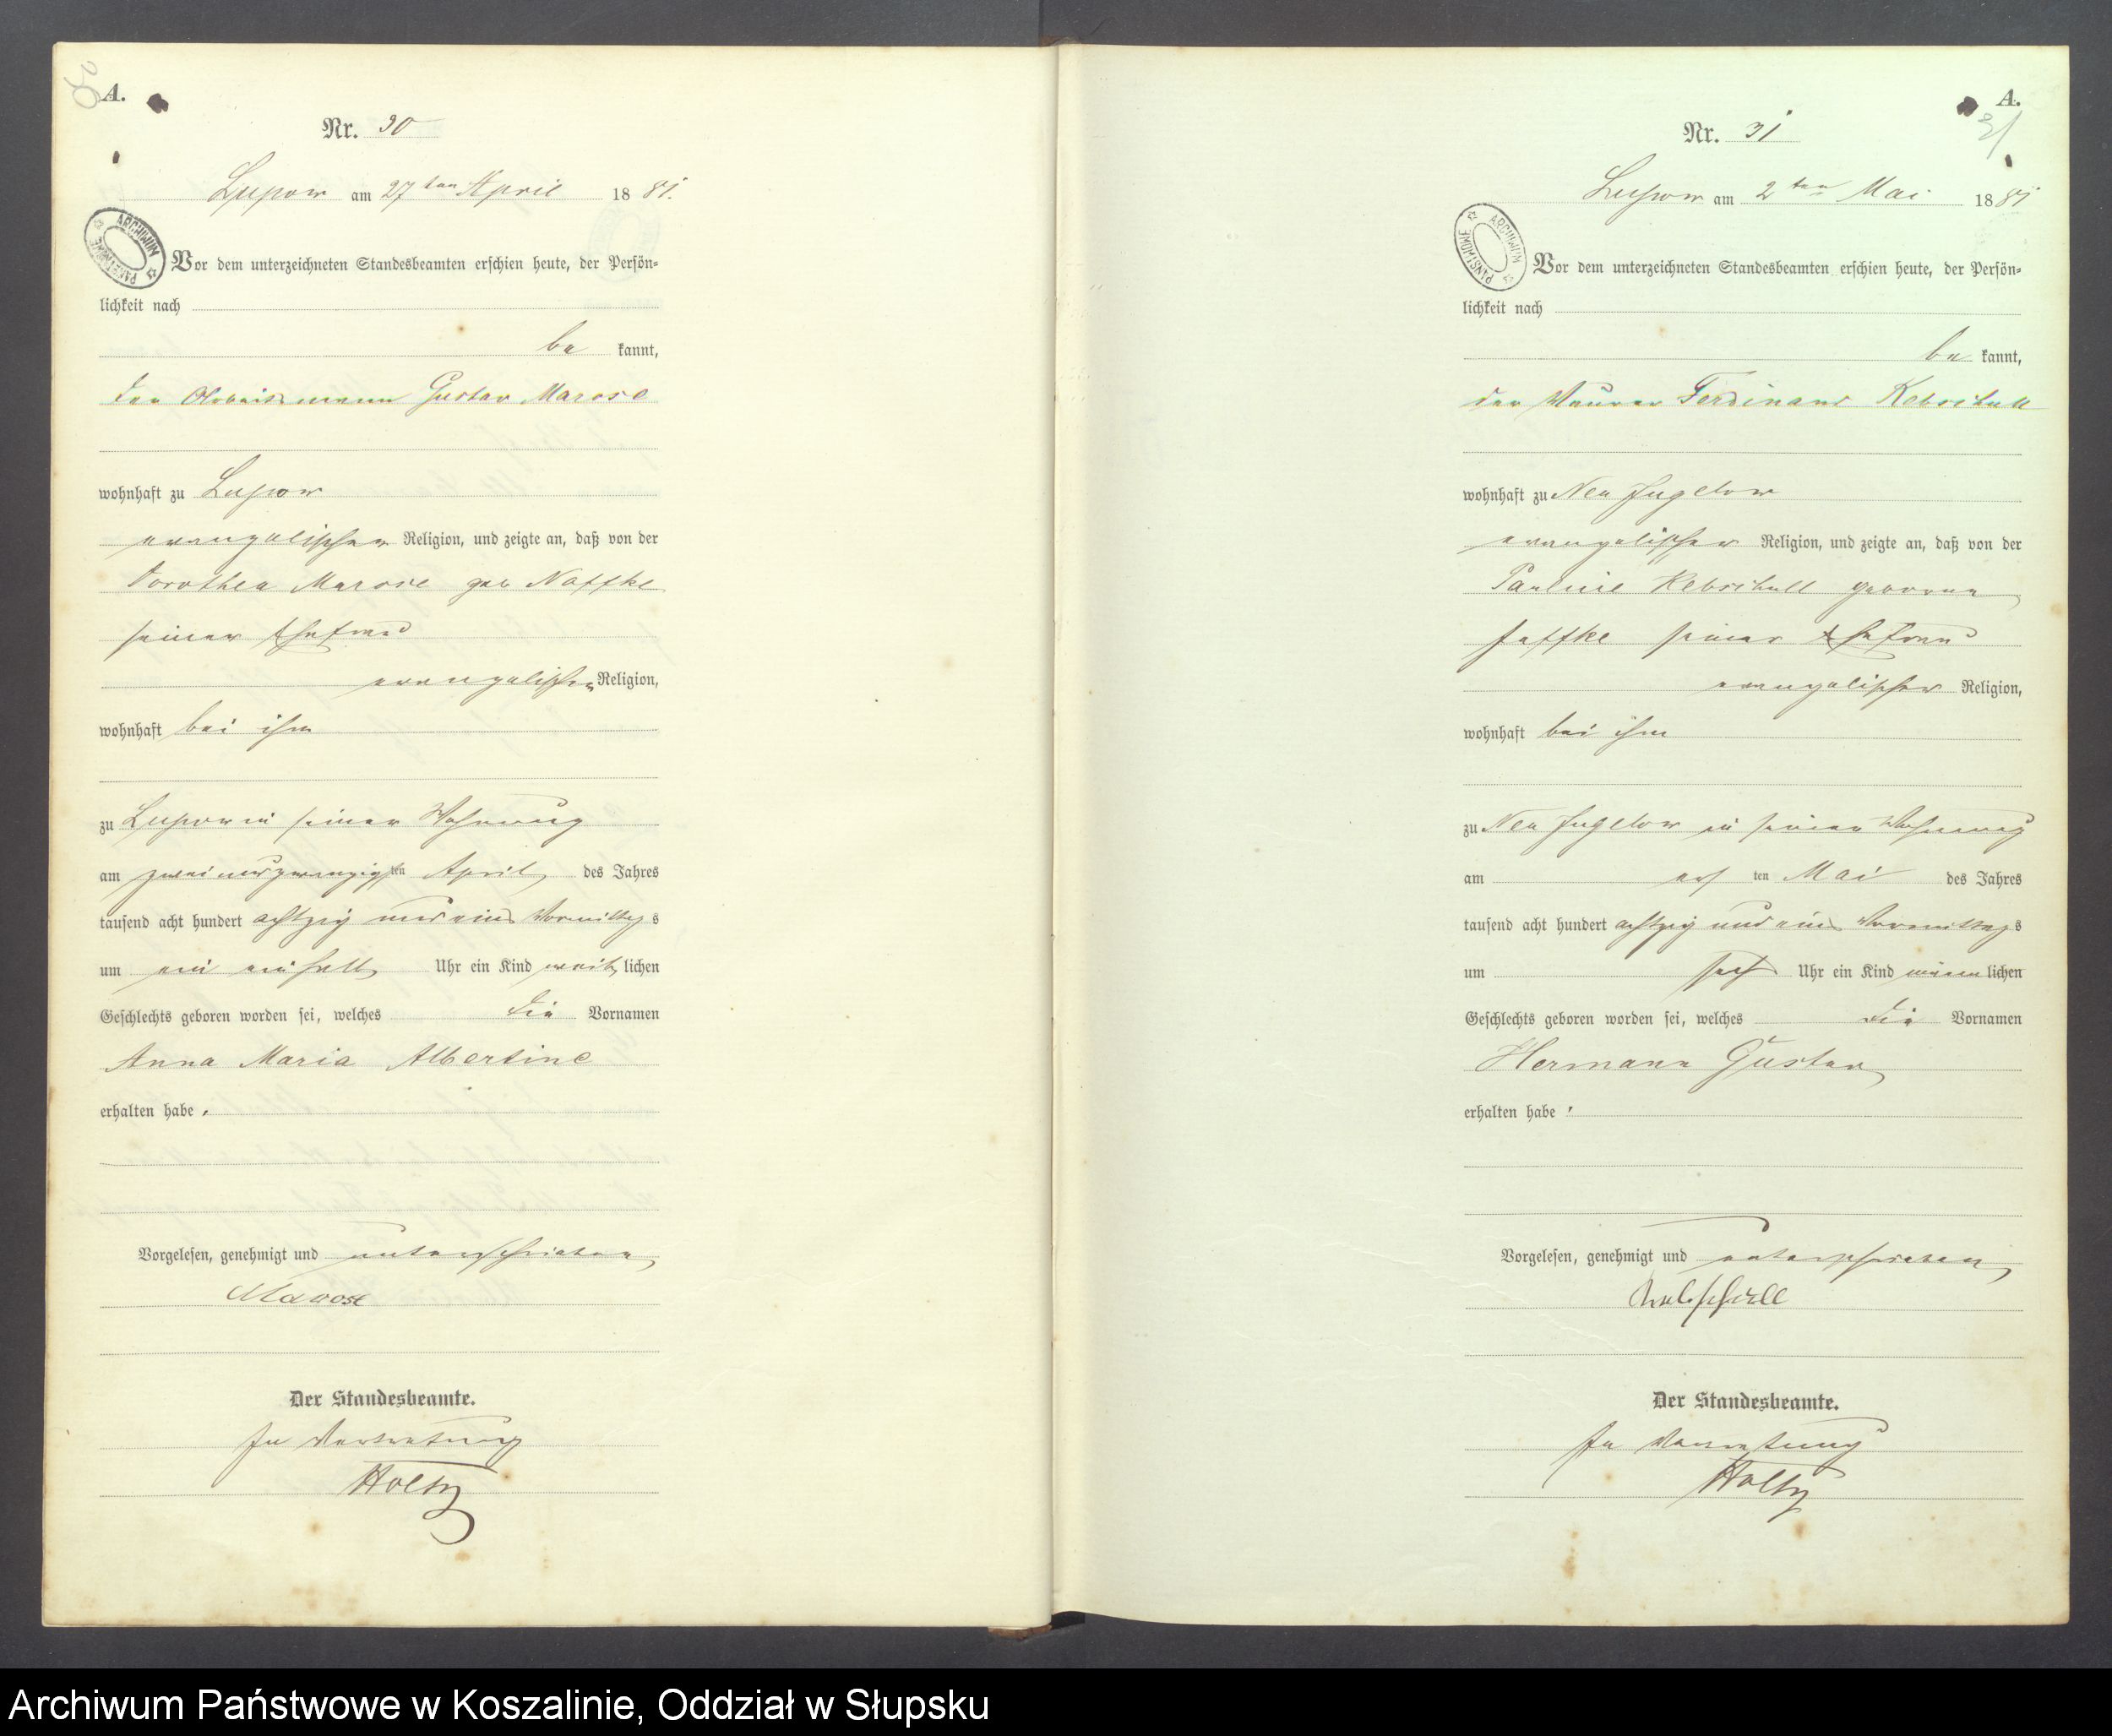 A.
30
Nr. 30
Lupow am 27ten April 1881.
ARCHIWUM PAŃSTWOWE
Vor dem unterzeichneten Standesbeamten erschien heute, der Persön-
lichkeit nach
be kannt,
der Arbeitsmann Gustav Marose
wohnhaft zu Lupow
evangelischer Religion, und zeigte an, daß von der
Dorothea Marose geb Noffke
seiner Ehefrau
evangelischer Religion,
wohnhaft bei ihm
zu Lupow in seiner Wohnung
am zwei und zwanzigsten April des Jahres
tausend acht hundert achtzig und eins Vormittags
um ein einhalb Uhr ein Kind weiblichen
Geschlechts geboren worden sei, welches die Vornamen
Anna Maria Albertine
erhalten habe.
Vorgelesen, genehmigt und unterschrieben
Marose
Der Standesbeamte.
In Vertretung
Holtz
A.
31
Nr. 31
Lupow am 2ten Mai 1881
ARCHIWUM PAŃSTWOWE
Vor dem unterzeichneten Standesbeamten erschien heute, der Persön-
lichkeit nach
be kannt,
der Maurer Ferdinand Kebschull
wohnhaft zu Neu Jugelow
evangelischer Religion, und zeigte an, daß von der
Pauline Kebschull geborene
Jaffke seiner Ehefrau
evangelischer Religion,
wohnhaft bei ihm
zu Neu Jugelow in seiner Wohnung
am ersten Mai des Jahres
tausend acht hundert achtzig und eins Vormittags
um Uhr ein Kind männlichen
Geschlechts geboren worden sei, welches die Vornamen
Hermann Gustav
erhalten habe.
Vorgelesen, genehmigt und unterschrieben
Kebschull
Der Standesbeamte.
In Vertretung
Holtz
Archiwum Państwowe w Koszalinie, Oddział w Słupsku